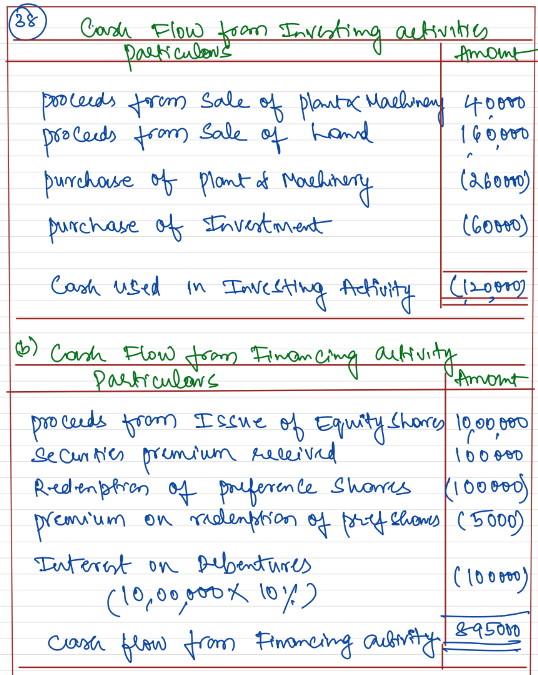 38
Cash Flow from Investing activities
Particulars Amount
proceeds from Sale of plant & Machinery 40,000
proceeds from Sale of Land 160,000
purchase of plant & Machinery (260000)
purchase of Investment (60000)
Cash used in Investing Activity (120,000)
(b) Cash Flow from Financing activity
Particulars Amount
proceeds from Issue of Equity Shares 10,00,000
Securities premium received 100000
Redemption of preference Shares (100000)
premium on redemption of pref shares (5000)
Interest on Debentures
(10,00,000 X 10%) (100000)
Cash flow from Financing activity 895000